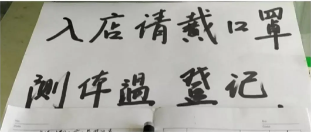 入店请戴口罩
测体温登记